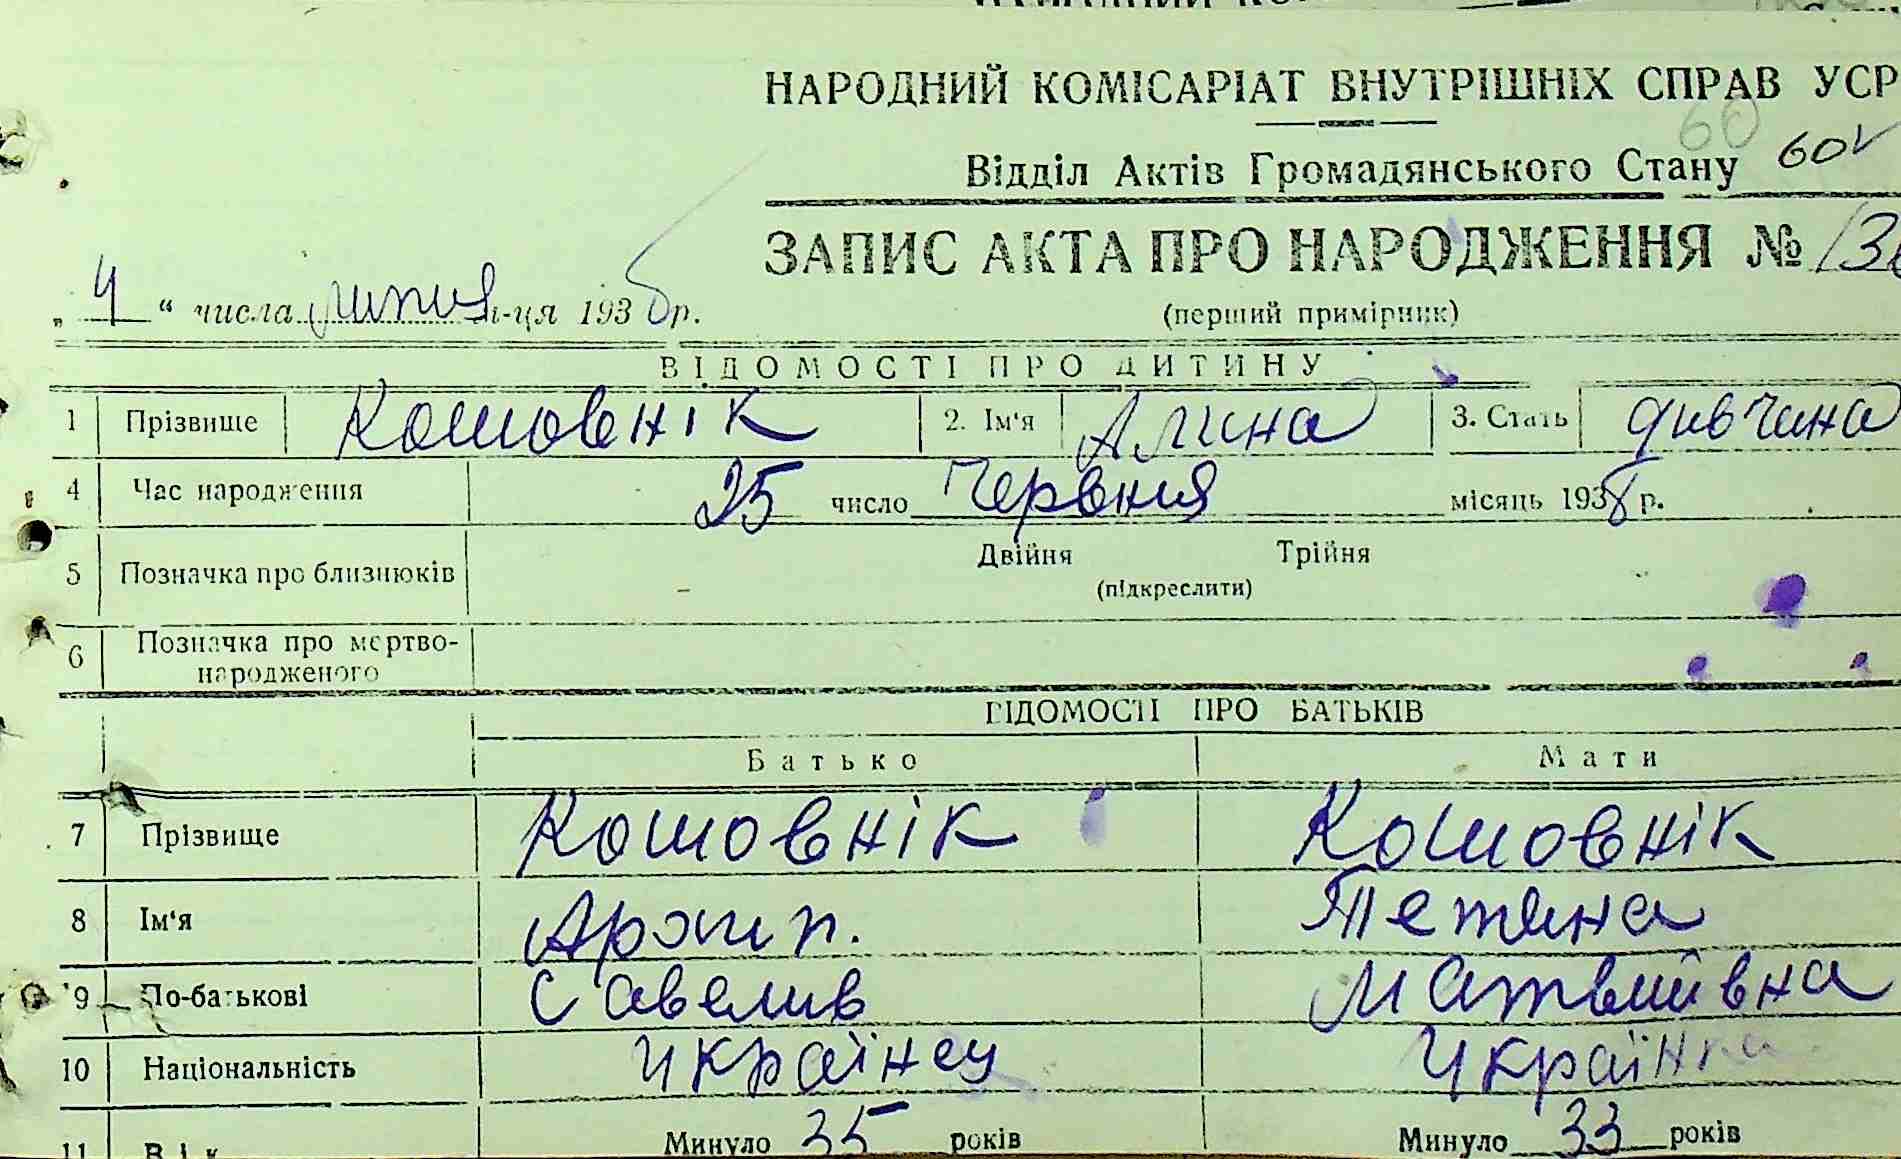 НАРОДНИЙ КОМІСАРІАТ ВНУТРІШНІХ СПРАВ УСР
60
Відділ Актів Громадянського Стану 60
ЗАПИС АКТА ПРО НАРОДЖЕННЯ № 13
(перший примірник)
„ 4 “ числа липня м-ця 193 р.
ВІДОМОСТІ ПРО ДИТИНУ
1 Прізвище Кошовнік 2. Ім'я Алина 3. Стать дивчина
4 Час народження 25 число Червня місяць 1938 р.
5 Позначка про близнюків Двійня Трійня
(підкреслити)
6 Позначка про мертво-
народженого
ВІДОМОСТІ ПРО БАТЬКІВ
Батько Мати
7 Прізвище Кошовнік Кошовнік
8 Ім'я Архип. Тетяна
9 По-батькові Савелив Матвиивна
10 Національність Українец Українка
11 Вік Минуло 35 років Минуло 33 років